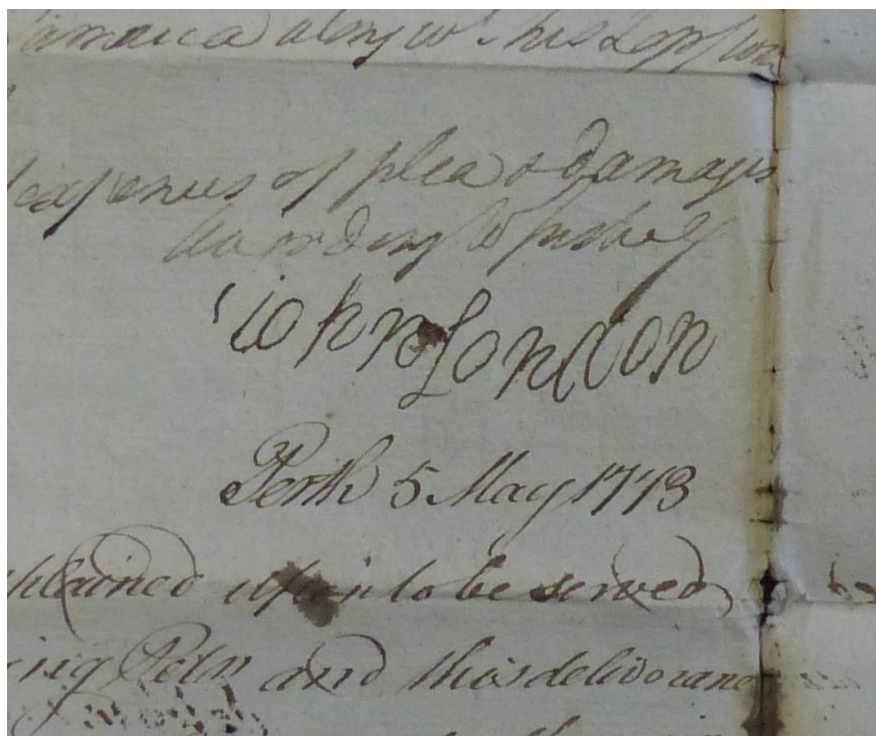 Jamaica along wt. his Lopp from
expences of plea & damages
according to justice
iohn London
Perth 5 May 1773
plained upon to be served
ing Petn and this deliverance